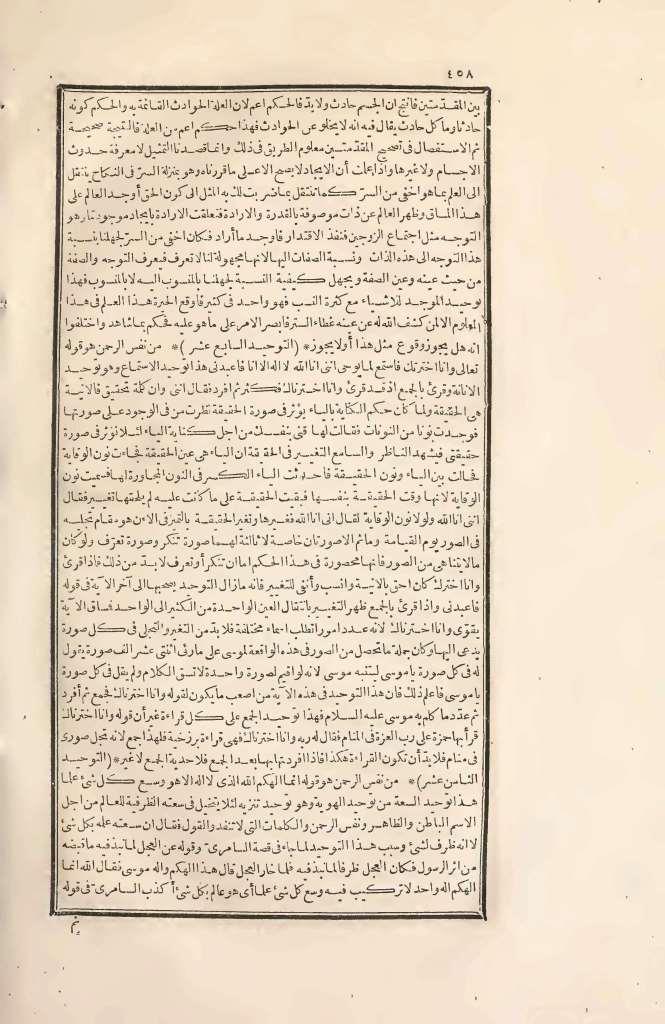 ٤٥٨
بين المقدّمتين فانتج ان الجسم حادث ولا بد فالحكم اعم لان العلة الحوادث القائمة به والحكم كونه
حادثا وما كل حادث يقال فيه انه لا يخلو عن الحوادث فهذا حكم اعم من العلة فالنتيجة صحيحة
ثم الاستفصال في تصحيح المقدّمتين معلوم الطريق في ذلك وانما قصدنا التمثيل لا معرفة حدوث
الاجسام ولا غيرها واذا علمت أن الايجاد لا يصح الا على ما قررناه وهو بمنزلة السرّ في النكاح ينتقل
الى العلم بما هو اخفى من السرّ كما تنتقل بما ضربت لك به المثل الى كون الحق أوجد العالم على
هذا المساق وظهر العالم عن ذات موصوفة بالقدرة والارادة فتعلقت الارادة بايجاد موجود تا وهو
التوجه مثل اجتماع الزوجين فنفذ الاقتدار فاوجد ما أراد فكان اخفى من السرّ لجهلنا بنسبة
هذا التوجه الى هذه الذات ونسبة الصفات اليها لانها مجهولة لنا لا تعرف فيعرف التوجه والصفة
من حيث عينه وعين الصفة ويجهل كيفية النسبة لجهلنا بالمنسوب اليه لا بالمنسوب فهذا
توحيد الموجد للاشياء مع كثرة النسب فهو واحد في كثير فاوقع الحيرة هذا العلم في هذا
المعلوم الا لمن كشف الله له عن عينه غطاء الستر فابصر الامر على ما هو عليه فحكم بما شاهد واختلفوا
انه هل يجوز وقوع مثل هذا أو لا يجوز * (التوحيد السابع عشر) * من نفس الرحمن هو قوله
تعالى وانا اخترتك فاستمع لما يوحى اننى انا الله لا اله الا انا فاعبدنى هذا توحيد الاستماع وهو توحيد
الانانة وقرئ بالجمع اذ قد قرئ وانا اخترناك فكثر ثم افرد فقال اننى وان كلمة تحقيق فالانية
هى الحقيقة ولما كان حكم الكناية بالياء يؤثر في صورة الحقيقة نظرت من في الوجود على صورتها
فوجدت نونا من النونات فقالت لها قنى بنفسك من اجل كناية الياء لئلا تؤثر في صورة
حقيقتى فيشهد الناظر والسامع التغيير في الحقيقة ان الياء هى عين الحقيقة فجاءت نون الوقاية
فحالت بين الياء ونون الحقيقة فاحدثت الياء الكسر في النون المجاورة لها فسميت نون
الوقاية لانها وقت الحقيقة بنفسها فبقيت الحقيقة على ما كانت عليه لم يلحقها تغيير فقال
اننى انا الله ولولا نون الوقاية لقال انى انا الله فغيرها وتغير الحقيقة بالضمير في الاين هو مقام تجليه
في الصور يوم القيامة وما ثم الا صورتان خاصة لا ثالثة لهما صورة تنكر وصورة تعرف ولو كان
ما لا يتناهى من الصور فانها محصورة في هذا الحكم اما ان تنكر أو تعرف لا بد من ذلك فاذا قرئ
وانا اخترتك كان احق بالآنية وانسب وأنفى للتغيير فانه ما زال التوحيد يصحبها الى آخر الآية في قوله
فاعبدنى واذا قرئ بالجمع ظهر التغيير بانتقال العين الواحدة من الكثير الى الواحد فساق الآية
يقوّى وانا اخترناك لانه عدد امور اتطلب اسماء مختلفة فلا بد من التغير والتجلى في كل صورة
يدعى اليها وكان جملة ما تحصل من الصور في هذه الواقعة لموسى على ما روى اثنتى عشر الف صورة يقول
له في كل صورة يا موسى ليتنبه موسى لانه لو اقيم لصورة واحدة لاتسق الكلام ولم يقل في كل صورة
يا موسى فاعلم ذلك فان هذا التوحيد في هذه الآية من اصعب ما يكون لقوله وانا اخترناك فجمع ثم أفرد
ثم عدّد ما كلم به موسى عليه السلام فهذا توحيد الجمع على كل قراءة غير أن قوله وانا اخترناك
قرأ بها حمزة على رب العزة في المنام فقال له ربه وانا اخترناك فهى قراءة برزخية فلهذا جمع لانه تجل صورى
في منام فلا بد أن تكون القراءة هكذا فاذا افردتها بهابعد الجمع فلاحدية الجمع لا غير * (التوحيد
الثامن عشر) * من نفس الرحمن هو قوله انما الهكم الله الذى لا اله الا هو وسع كل شئ علما
هذا توحيد السعة من توحيد الهوية وهو توحيد تنزيه لئلا يتخيل في سعته الظرفية للعالم من اجل
الاسم الباطن والظاهر ونفس الرحمن والكلمات التى لا تنفد والقول فقال ان سعته علمه بكل شئ
لا انه ظرف لشئ وسبب هذا التوحيد لما جاء في قصة السامرى وقوله عن العجل لما نبذ فيه ما قبضه
من اثر الرسول فكان العجل ظرفا لما نبذ فيه فلما خار العجل قال هذا الهكم واله موسى فقال الله انما
الهكم اله واحد لا تركيب فيه وسع كل شئ علما أى هو عالم بكل شئ أكذب السامرى في قوله